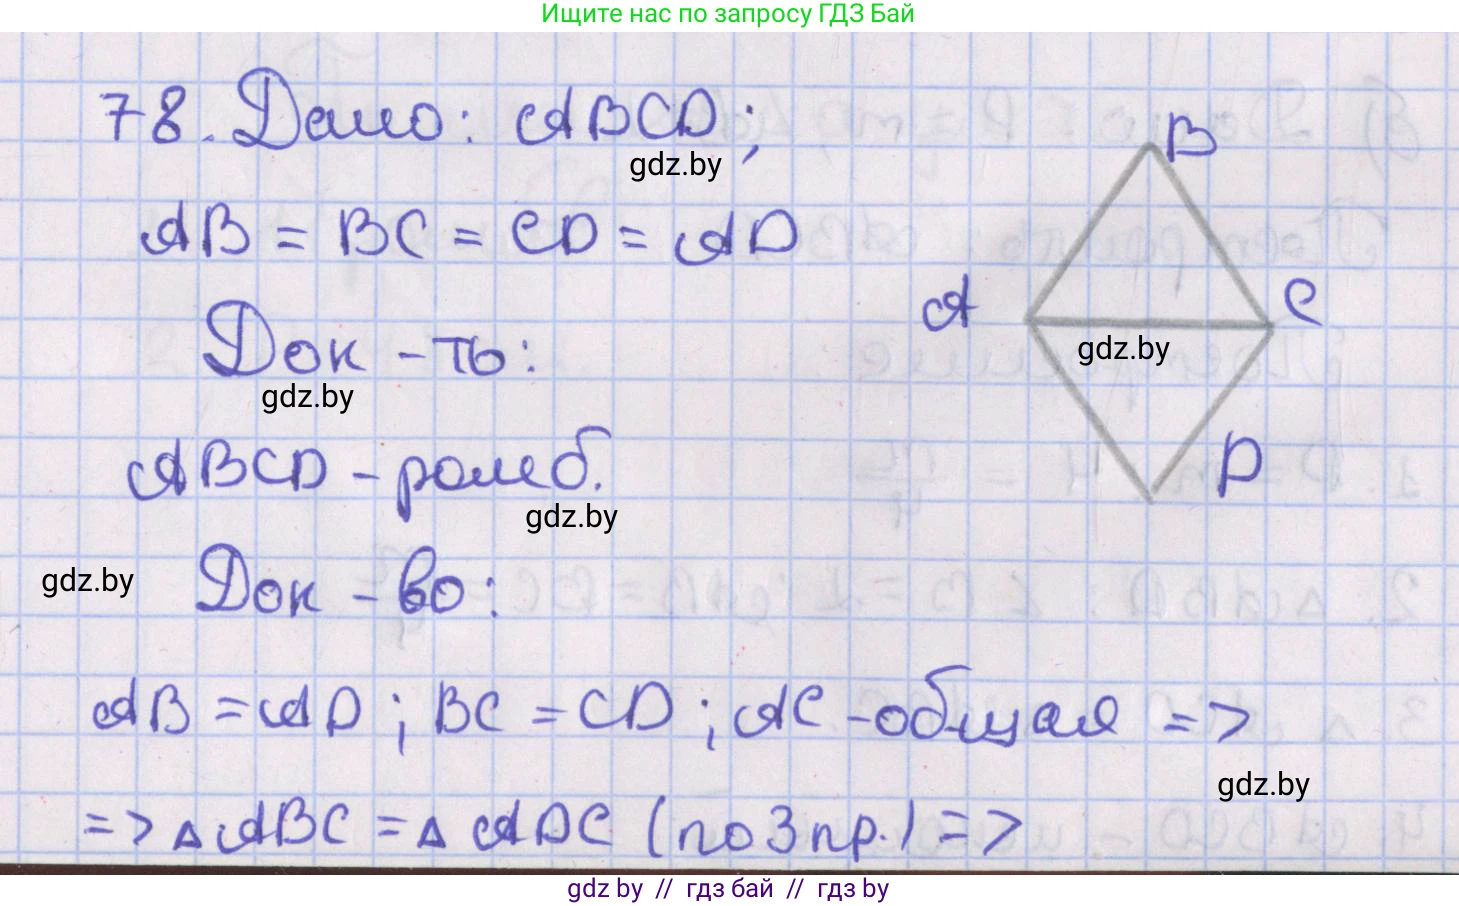 Ищите нас по запросу ГДЗ Бай
78. Дано: ABCD;
gdz.by
AB = BC = CD = AD
B
A
C
gdz.by
Док-ть:
gdz.by
ABCD - ромб.
D
gdz.by
gdz.by
Док-во:
AB = AD; BC = CD; AC - общая =>
gdz.by
=> △ ABC = △ ADC (по 3 пр.) =>
gdz by // гдз бай // гдз by